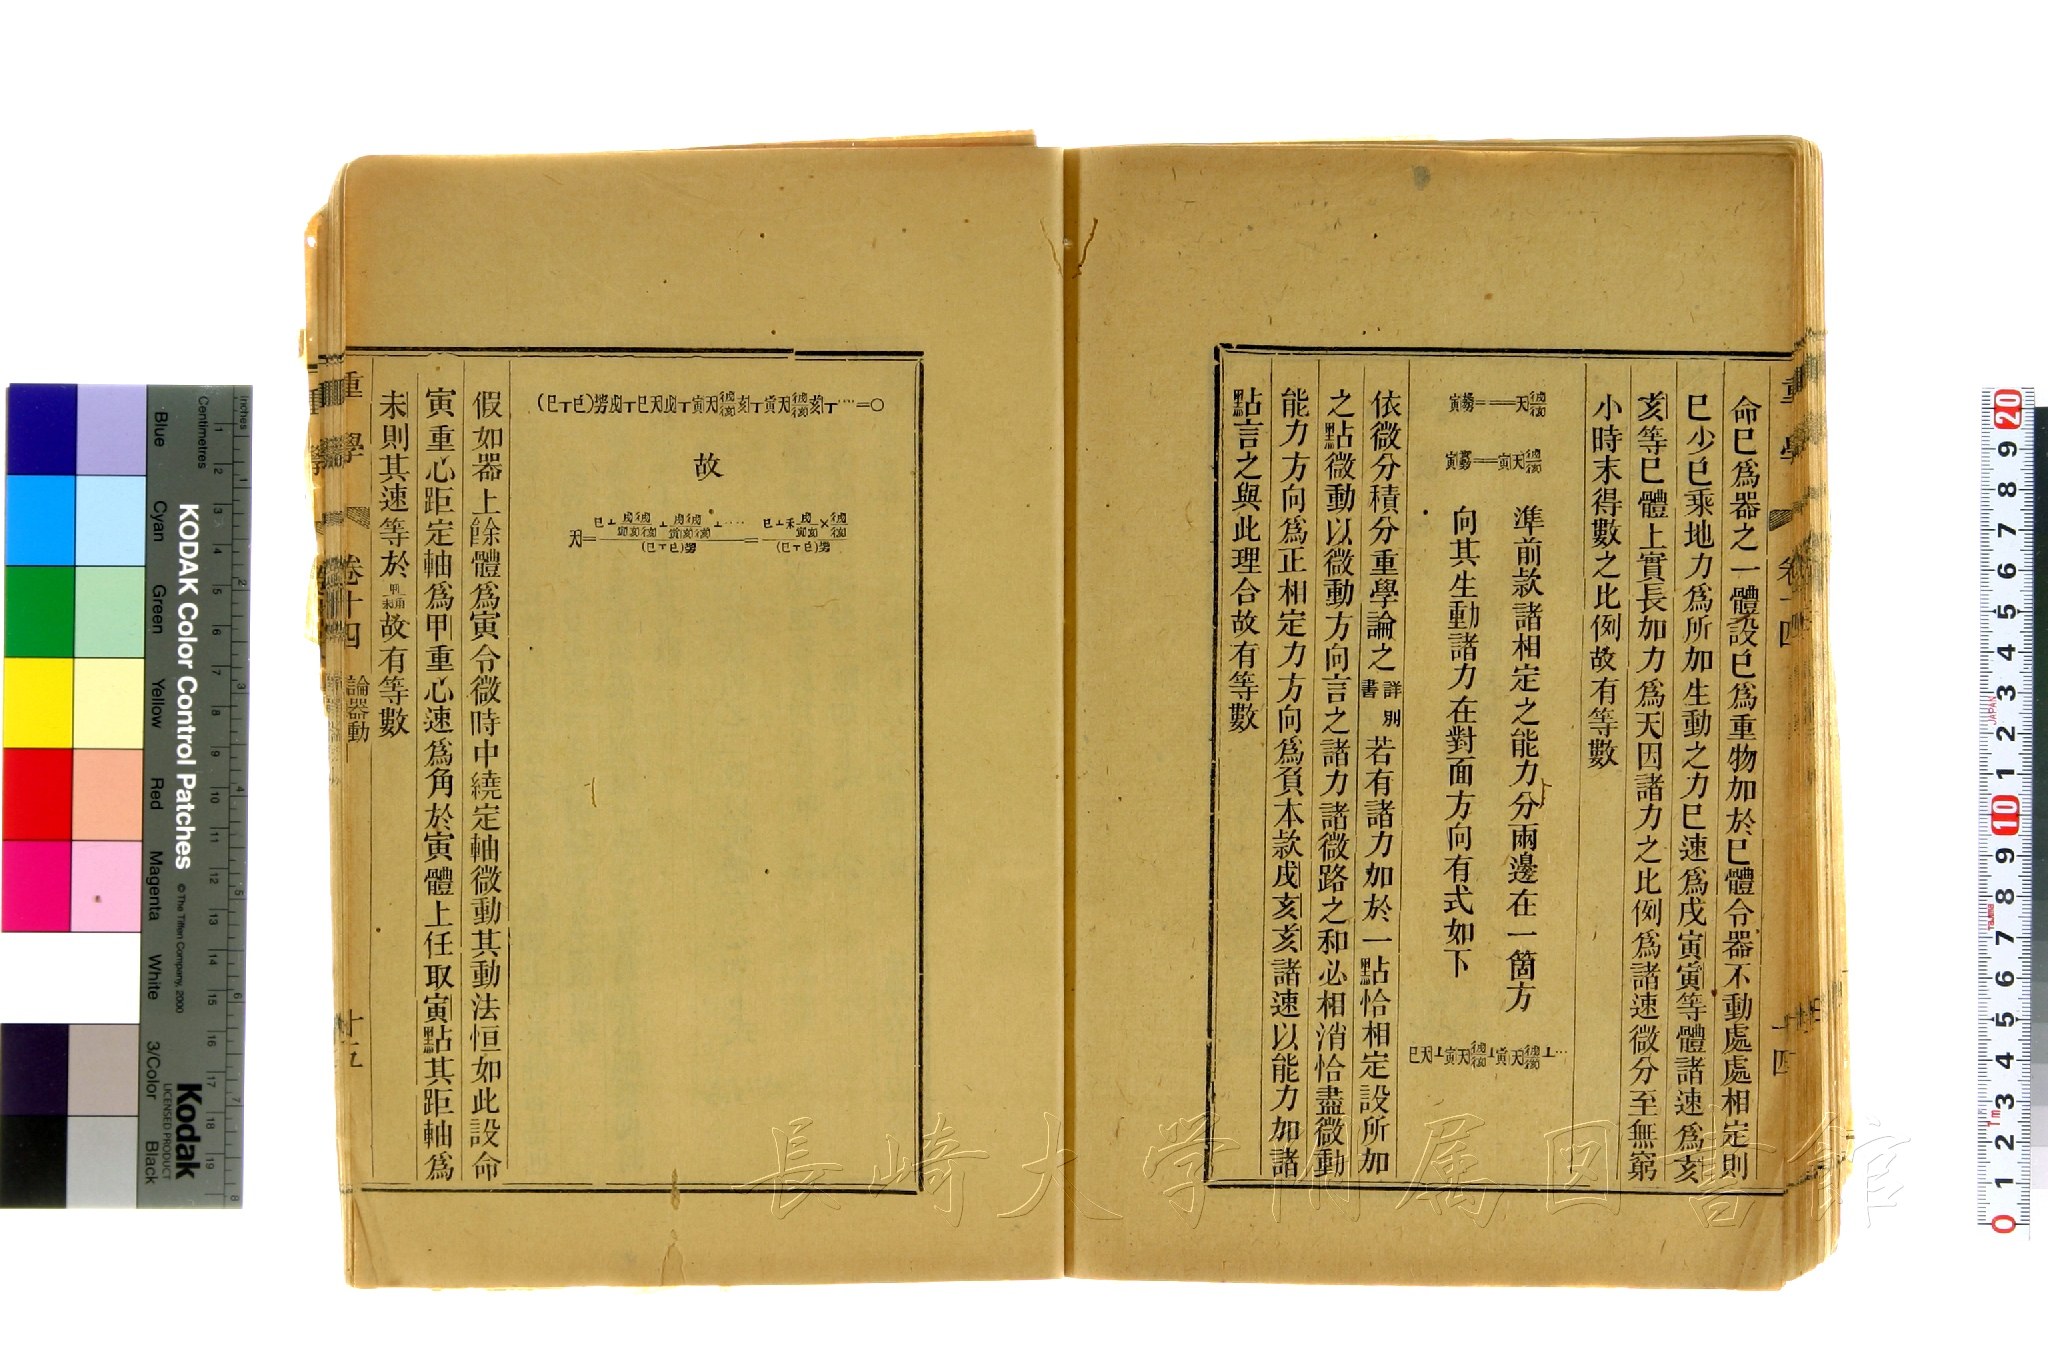 命巳爲器之一體設巳爲重物加於巳體令器不動處處相定則
巳少巳乘地力爲所加生動之力巳速爲戌寅寅等體諸速爲亥
亥等巳體上實長加力爲天因諸力之比例爲諸速微分至無窮
小時末得數之比例故有等數
準前款諸相定之能力分兩邊在一箇方
向其生動諸力在對面方向有式如下
依微分積分重學論之詳別書若有諸力加於一點恰相定設所加
之點微動以微動方向言之諸力諸微路之和必相消恰盡微動
能力方向爲正相定力方向爲負本款戌亥亥諸速以能力加諸
點言之與此理合故有等數
故
假如器上餘體爲寅令微時中繞定軸微動其動法恒如此設命
寅重心距定軸爲甲重心速爲角於寅體上任取寅點其距軸爲
未則其速等於故有等數
重學
卷十四
論器動
十五
長崎大学附属図書館
KODAK Color Control Patches
©The Tiffen Company, 2000
Kodak
LICENSED PRODUCT
Blue
Cyan
Green
Yellow
Red
Magenta
White
3/Color
Black
Centimetres
Inches
JAPAN